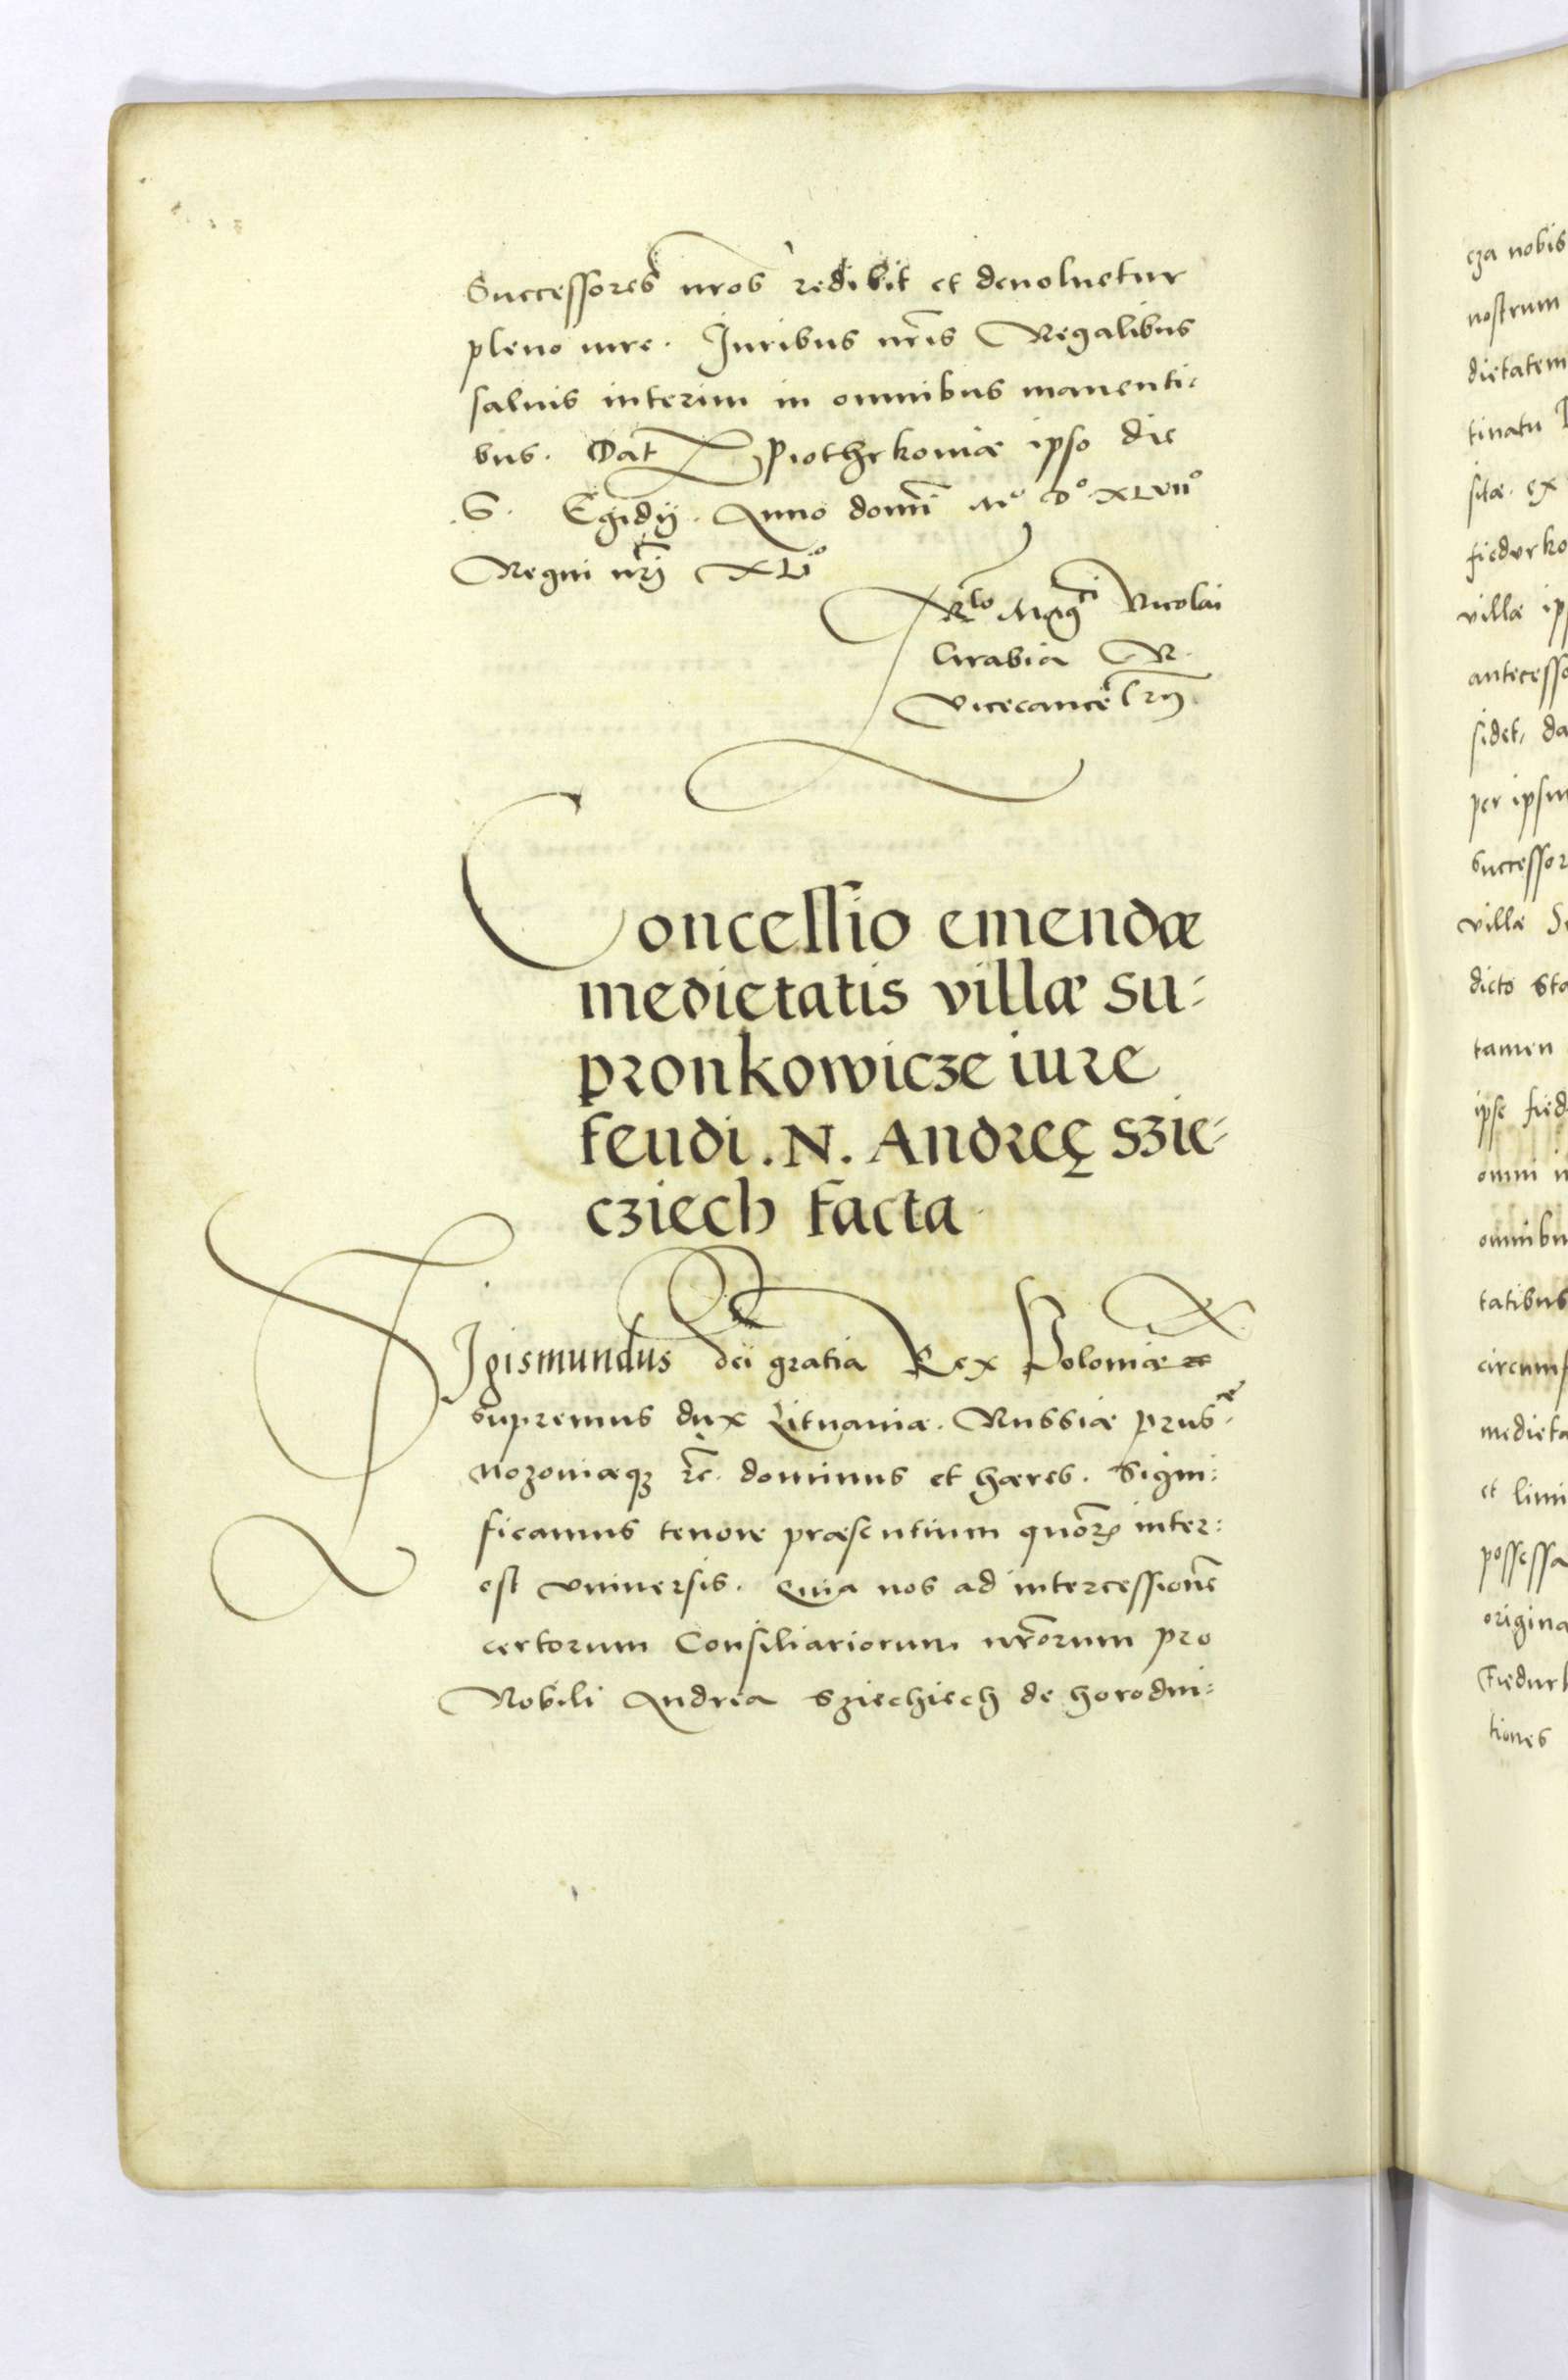 Successores nr̃os redibit et deuoluetur
pleno iure. Iuribus nr̃is Regalibus
saluis interim in omnibus manenti-
bus. Dat Piothrkouiæ ipso die
.S. Egidij. Anno domĩ Mº Dº XLVIIº
Regni nr̃j XLIº
Rlo Magci Nicolai
Grabia R.
Vicecancelrij
Concessio emendæ
medietatis villæ Su-
pronkowicze iure
feudi. N. Andreę Szie-
cziech facta
SIgismundus dei gratia Rex Poloniæ
supremus dux Lituaniæ. Russiæ prusæ.
Mozouiæq3 rc̃. dominus et hæres. Signi:
ficamus tenore præsentium quoꝝ inter:
est vniuersis. Quia nos ad intercessionẽ
certorum Consiliariorum nr̃orum pro
Nobili Andrea Sziechiech de horodni:
cza nobis
nostrum
dietatem
tinatu
sitæ. ex
fiedurko
villæ ip
antecesso
sidet, da
per ipsu
successor
villæ
dicto sta
tamen
ipse fied
omni i
omnibu
tatibus
circumf
medieta
et limi
possessa
origina
Fiedurk
tiones